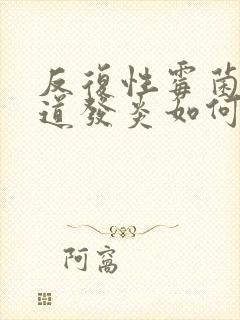 反復性霉菌
道發炎如何
阿窩